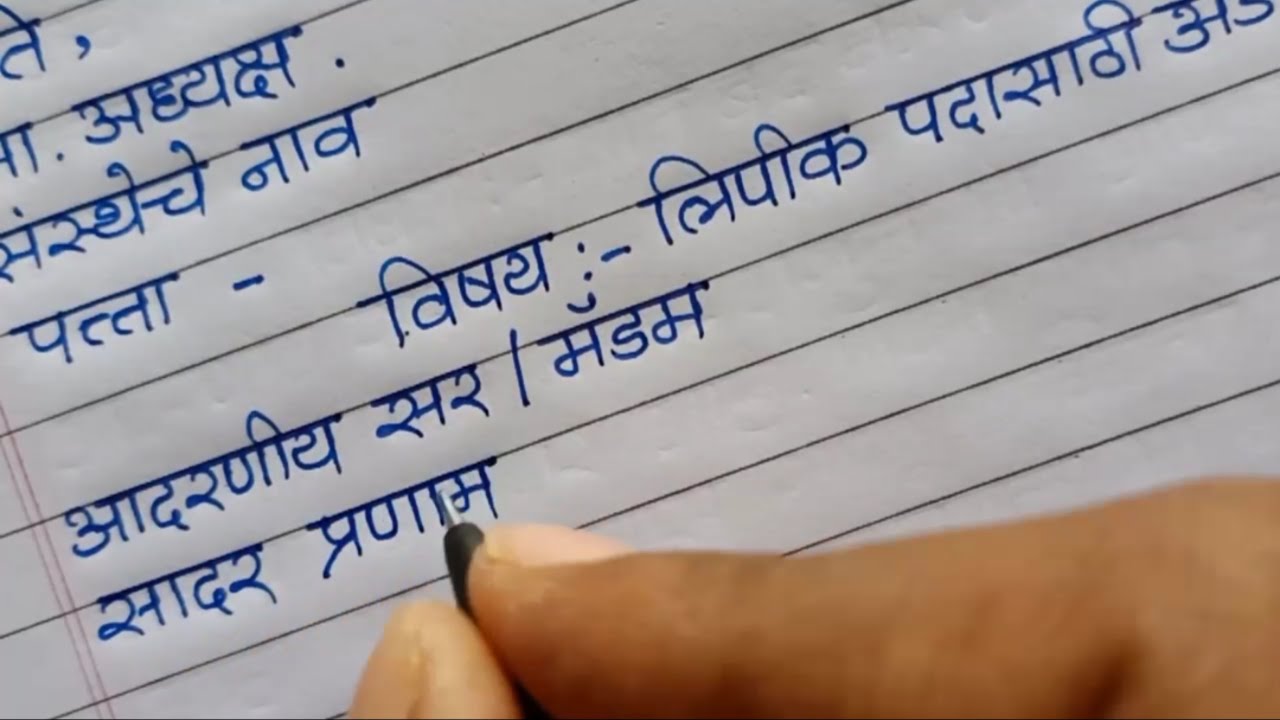 ते,
मा. अध्यक्ष.
संस्थेचे नाव
पत्ता -
विषय :- लिपीक पदासाठी
आदरणीय सर / मॅडम
सादर प्रणाम